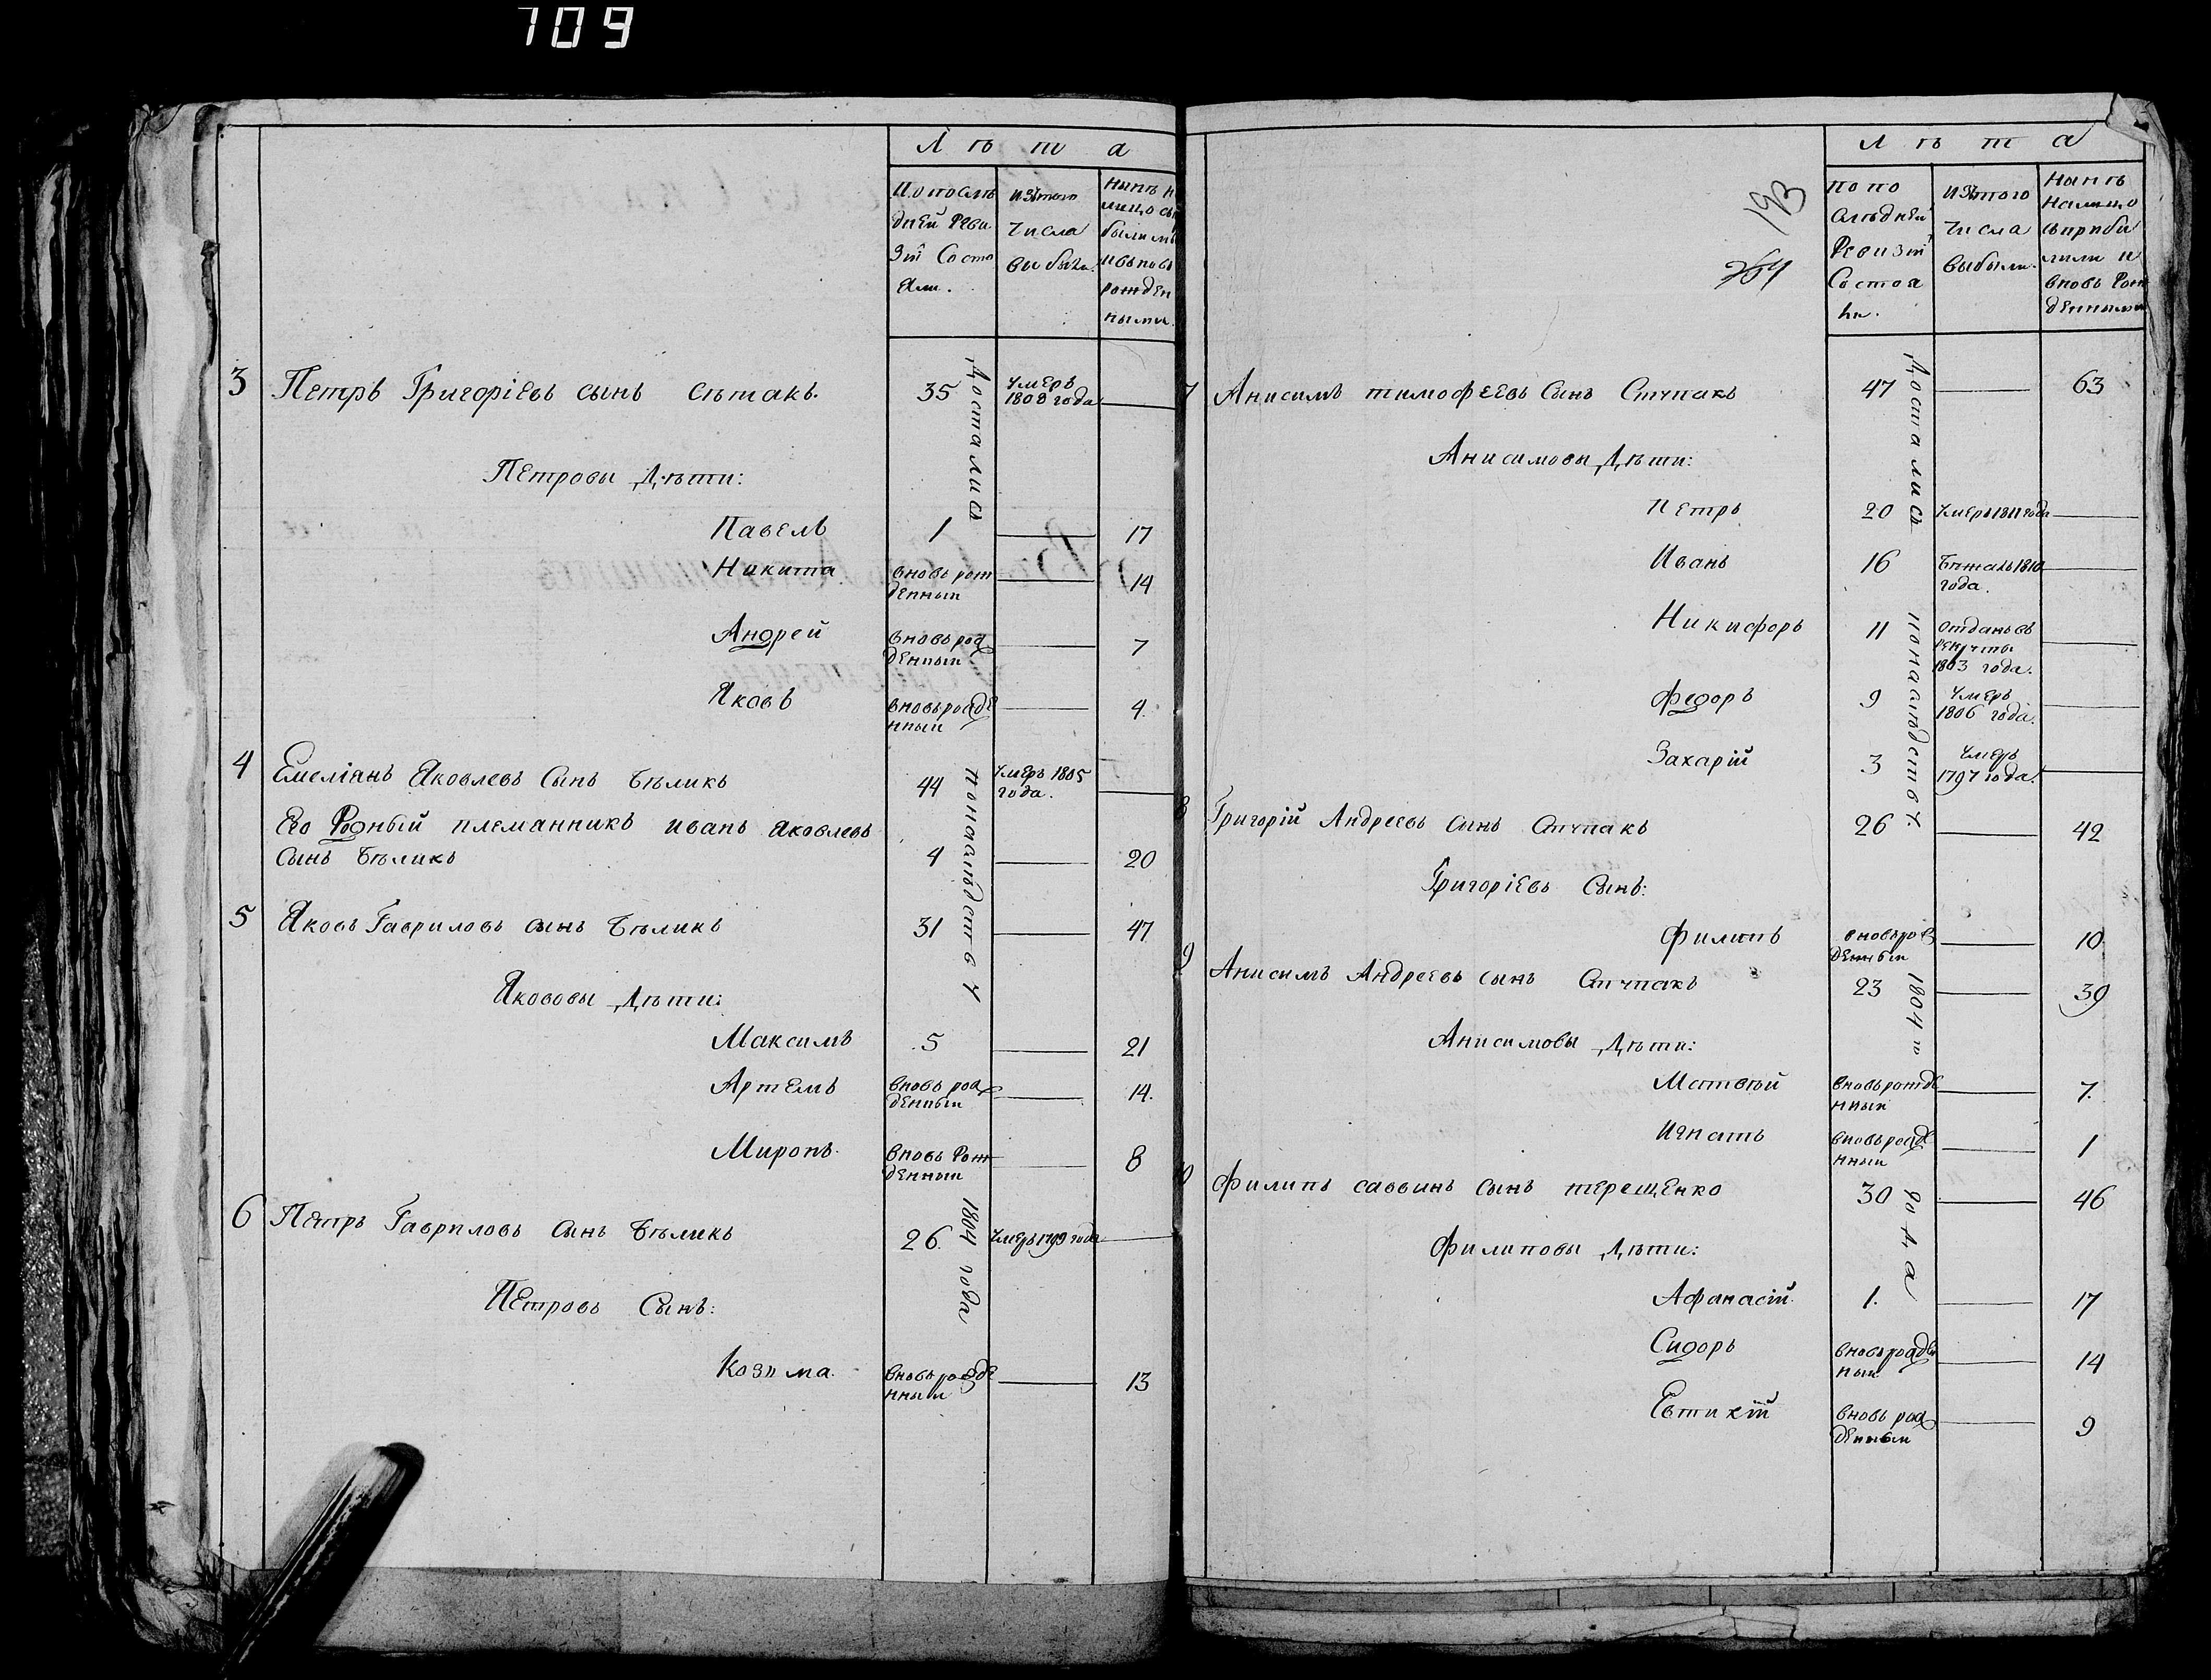 709
Лѣта
По послѣ
дней Реви
зіи Состо
яли.
изъ того
числа
выбыли.
нынѣ н
лицо съ
были
и вновь
рожден
ными.
3 Петръ Григоріевъ сынъ Сѣтакъ. 35 умеръ 1808 года
Петровы Дѣти:
Павелъ 1 17
Никита вновь рож денный 14
Андрей вновь рож денный 7
Яковъ вновь рожде нный 4.
4 Емеліанъ Яковлевъ Сынъ Бѣликъ 44 умеръ 1805 года.
Его Родный племанникъ иванъ Яковлевъ
Сынъ Бѣликъ 4 20
5 Яковъ Гавриловъ сынъ Бѣликъ 31 47
Якововы Дѣти:
Максимъ 5 21
Артемъ вновь рож денный 14.
Миронъ. вновь Рож денный 8
6 Петръ Гавриловъ Сынъ Бѣликъ 26. умеръ 1799 года
Петровъ Сынъ:
Козма. вновь рожде нный 13
Достались
по наслѣдству
1804 года
193
264
Лѣта
по по
слѣдней
Ревизіи
Состоя
ли.
изъ того
числа
выбыли.
Нынѣ
Налицо
съ прибы
лыми и
вновь Рож
денными
7 Анисимъ тимофеевъ Сынъ Ступакъ 47 63
Анисимовы Дѣти:
Петръ 20 умеръ 1811 года
Иванъ 16 Бѣжалъ 1810 года.
Никифоръ 11 отданъ въ рекруты 1803 года.
Федоръ 9 умеръ 1806 года.
Захарій 3 умеръ 1797 года.
8 Григорій Андреевъ сынъ Ступакъ 26 42
Григоріевъ Сынъ:
Филипъ вновь рож денный 10
9 Анисимъ Андреевъ сынъ Ступакъ 23 39
Анисимовы Дѣти:
Матвѣй вновь рожде нный 7.
Игнатъ вновь рожде нный 1
10 Филипъ саввинъ сынъ терещенко 30 46
Филиповы Дѣти:
Афанасій. 1. 17
Сидоръ вновь рожден ный 14
Евтихій вновь рож денный 9
Достались
по наслѣдству.
1804 го
года